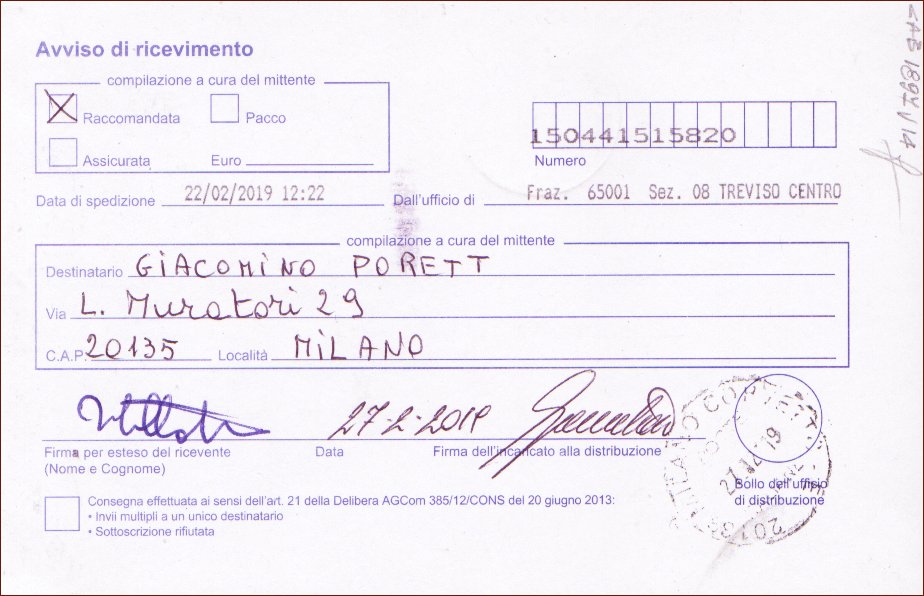 Avviso di ricevimento
compilazione a cura del mittente
Raccomandata Pacco
Assicurata Euro
150441515820
Numero
Data di spedizione 22/02/2019 12:22 Dall'ufficio di Fraz. 65001 Sez. 08 TREVISO CENTRO
compilazione a cura del mittente
Destinatario GIACOMINO PORETT
Via L. Muratori 29
C.A.P. 20135 Località MILANO
27-2-2019
Firma per esteso del ricevente Data Firma dell'incaricato alla distribuzione
(Nome e Cognome)
Bollo dell'ufficio
di distribuzione
Consegna effettuata ai sensi dell'art. 21 della Delibera AGCom 385/12/CONS del 20 giugno 2013:
• Invii multipli a un unico destinatario
• Sottoscrizione rifiutata